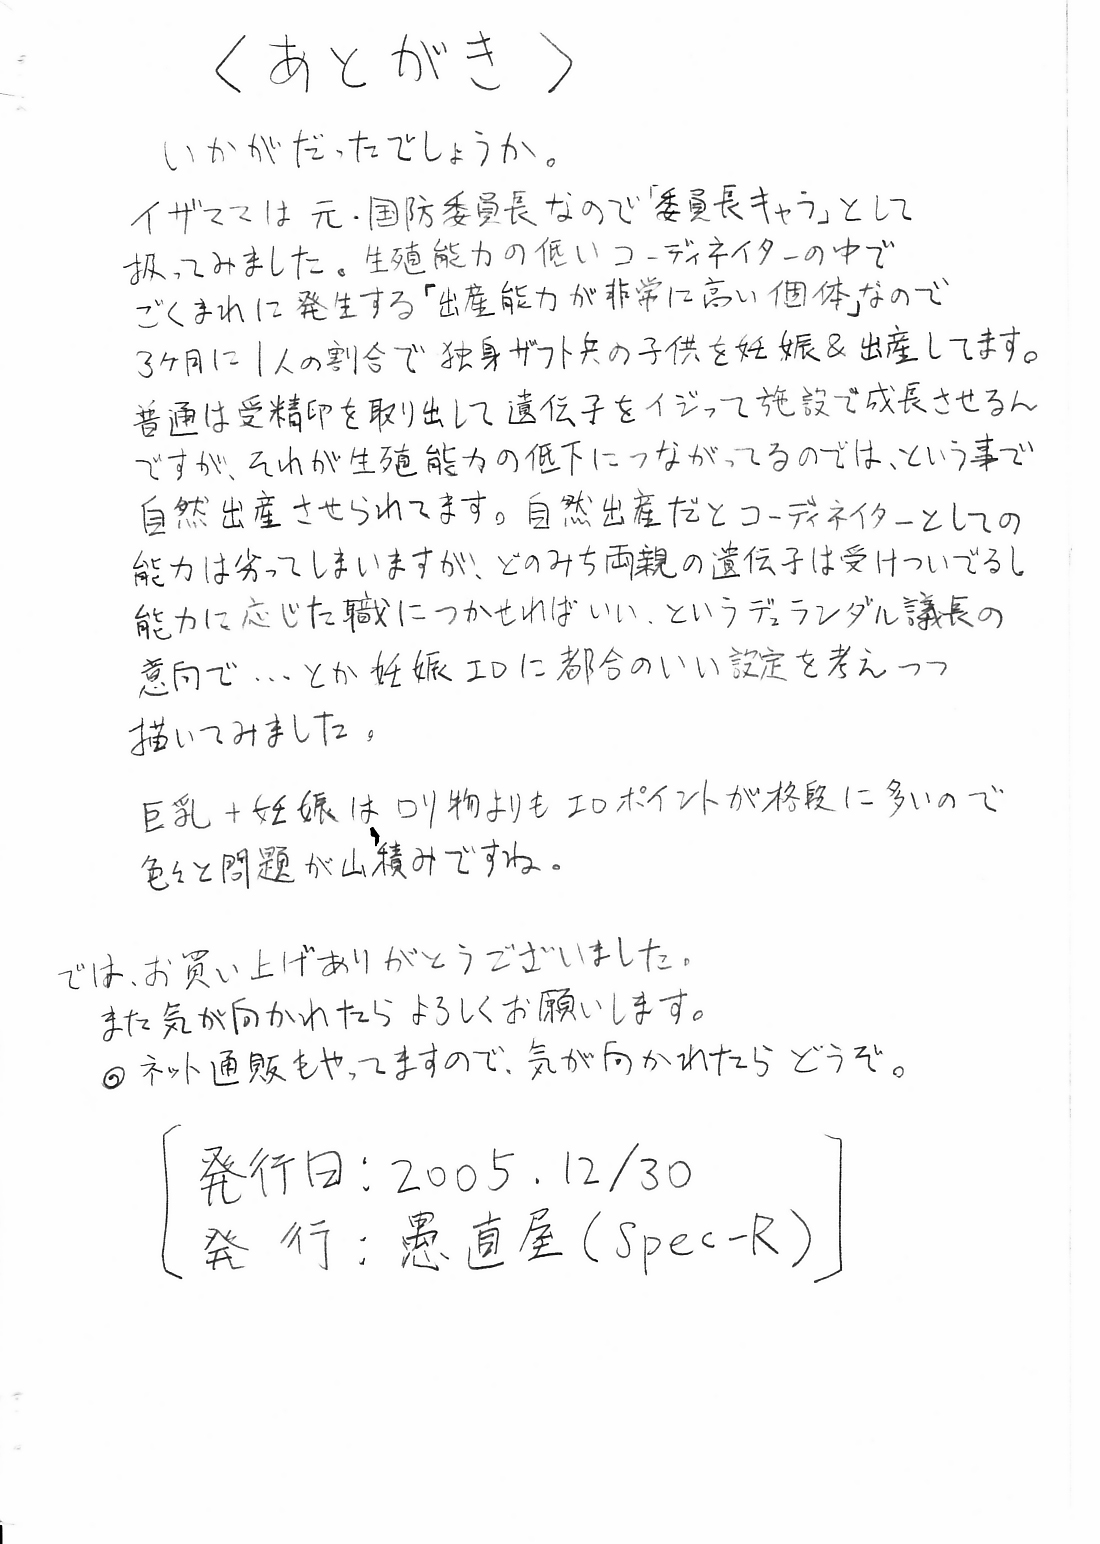 〈あとがき〉
いかがだったでしょうか。
イザママは元・国防委員長なので「委員長キャラ」として
扱ってみました。生殖能力の低いコーディネイターの中で
ごくまれに発生する「出産能力が非常に高い個体」なので
3ヶ月に1人の割合で独身ザフト兵の子供を妊娠&出産してます。
普通は受精卵を取り出して遺伝子をイジって施設で成長させるん
ですが、それが生殖能力の低下につながってるのでは、という事で
自然出産させられてます。自然出産だとコーディネイターとしての
能力は劣ってしまいますが、どのみち両親の遺伝子は受けついでるし
能力に応じた職につかせればいい、というデュランダル議長の
意向で…とか妊娠エロに都合のいい設定を考えつつ
描いてみました。
巨乳+妊娠は、ロリ物よりもエロポイントが格段に多いので
色々と問題が山積みですね。
では、お買い上げありがとうございました。
また気が向かれたらよろしくお願いします。
◎ネット通販もやってますので、気が向かれたらどうぞ。
発行日:2005.12/30
発行:愚直屋(Spec-R)